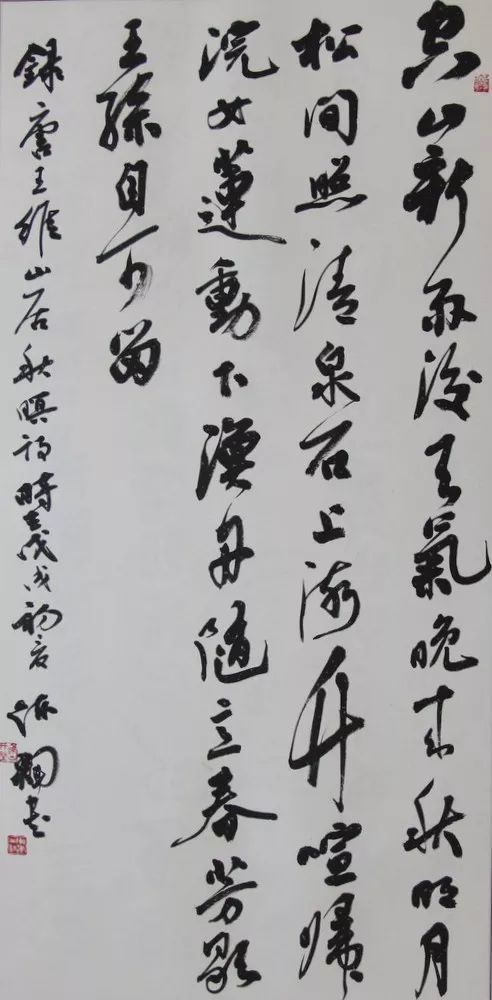 空山新雨後天氣晚来秋明月
松間照清泉石上流竹喧歸
浣女蓮動下漁舟隨意春芳歇
王孫自可留
録唐王維山居秋暝詩時在戊戌初 書